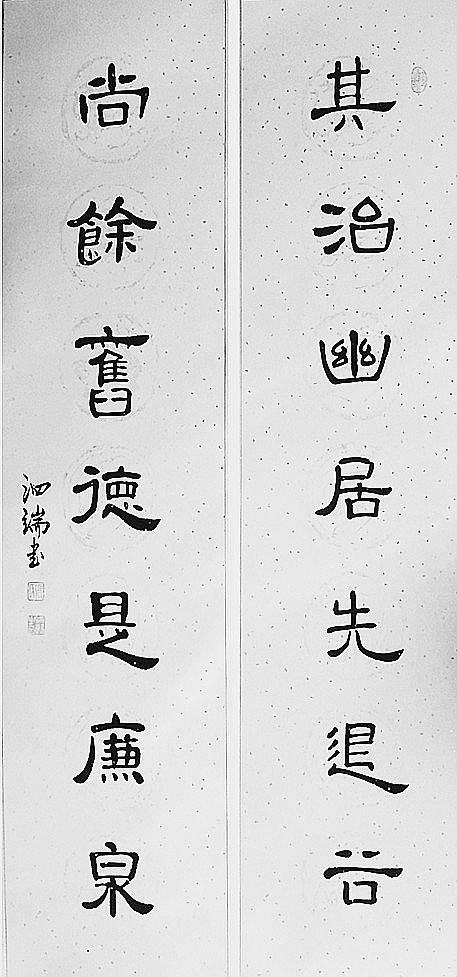 其治幽居先退谷
尚餘舊德是廉泉
泗端書